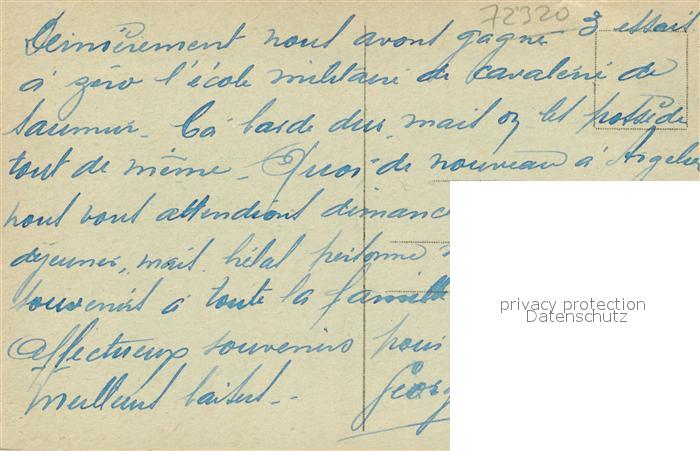 72320
Dernièrement nous avons gagné 3 essais
à zéro l'école militaire de cavalerie de
Saumur. Ça barde dur, mais on les possède
tout de même. Quoi de nouveau à
nous vous attendions
déjeuner, mais hélas personne
souvenirs à toute la famille
affectueux souvenirs pour
Meilleurs baisers..
privacy protection
Datenschutz